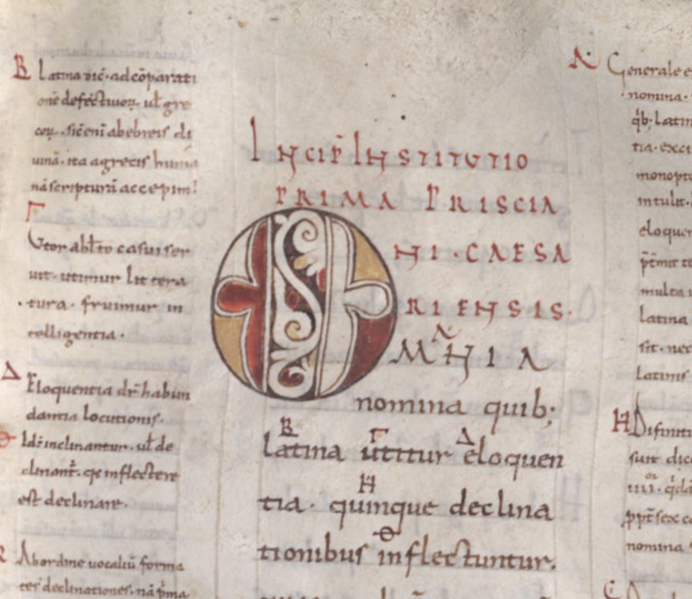 B Latina dic̄. adcōparati
onē defectiuoꝝ. ul̄ gre
coꝝ. sic̄ eni ab ebreis di
uinā. ita a grecis humā
nā scripturā accepim᛬
Γ
Utor abl̄to casui ser
uit. utimur littera
tura. fruimur in
telligentia.
Δ Eloquentia dr̄ habun
dantia locutionis.
Θ Id᛫ inclinantur. ul̄ de
clinant᛫. qͥa inflectere
est declinare.
R Ab ordine uocaliū forma
ter declinationes. nā p̄ma
INCIP̄ INSTITUTIO
PRIMA PRISCIA
NI. CAESA
RIENSIS.
A
OMNIA
nomina quib;
B Γ Δ
latina utitur eloquen
H
tia. quinque declina
Θ
tionibus inflectuntur.
A Generale
nomina.
qͥb; latin
tia. exci
monopt
intulit.
eloquen
multa
latina
sit. nec
Latinis
H Difiniti
sunt dic
iiii. qͥdā
ꝓpt̄ sex c
nomina